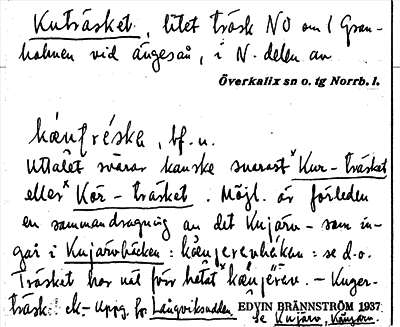 Kuträsket, litet träsk NO om l Gran-
holmen vid ängesån, i N. delen av
Överkalix sn o. tg Norrb. l.
bf. n.
Uttalet svarar kanske snarast *Kur-träsket
eller *Kör-träsket. Möjl. är förleden
en sammandragning av det Kujärv- som in-
går i Kujärvbäcken: se d.o.
Träsket har väl förr hetat
träsk: ek-uppg. fr. Långviksudden
EDVIN BRÄNNSTRÖM 1937
Se Kujärv,